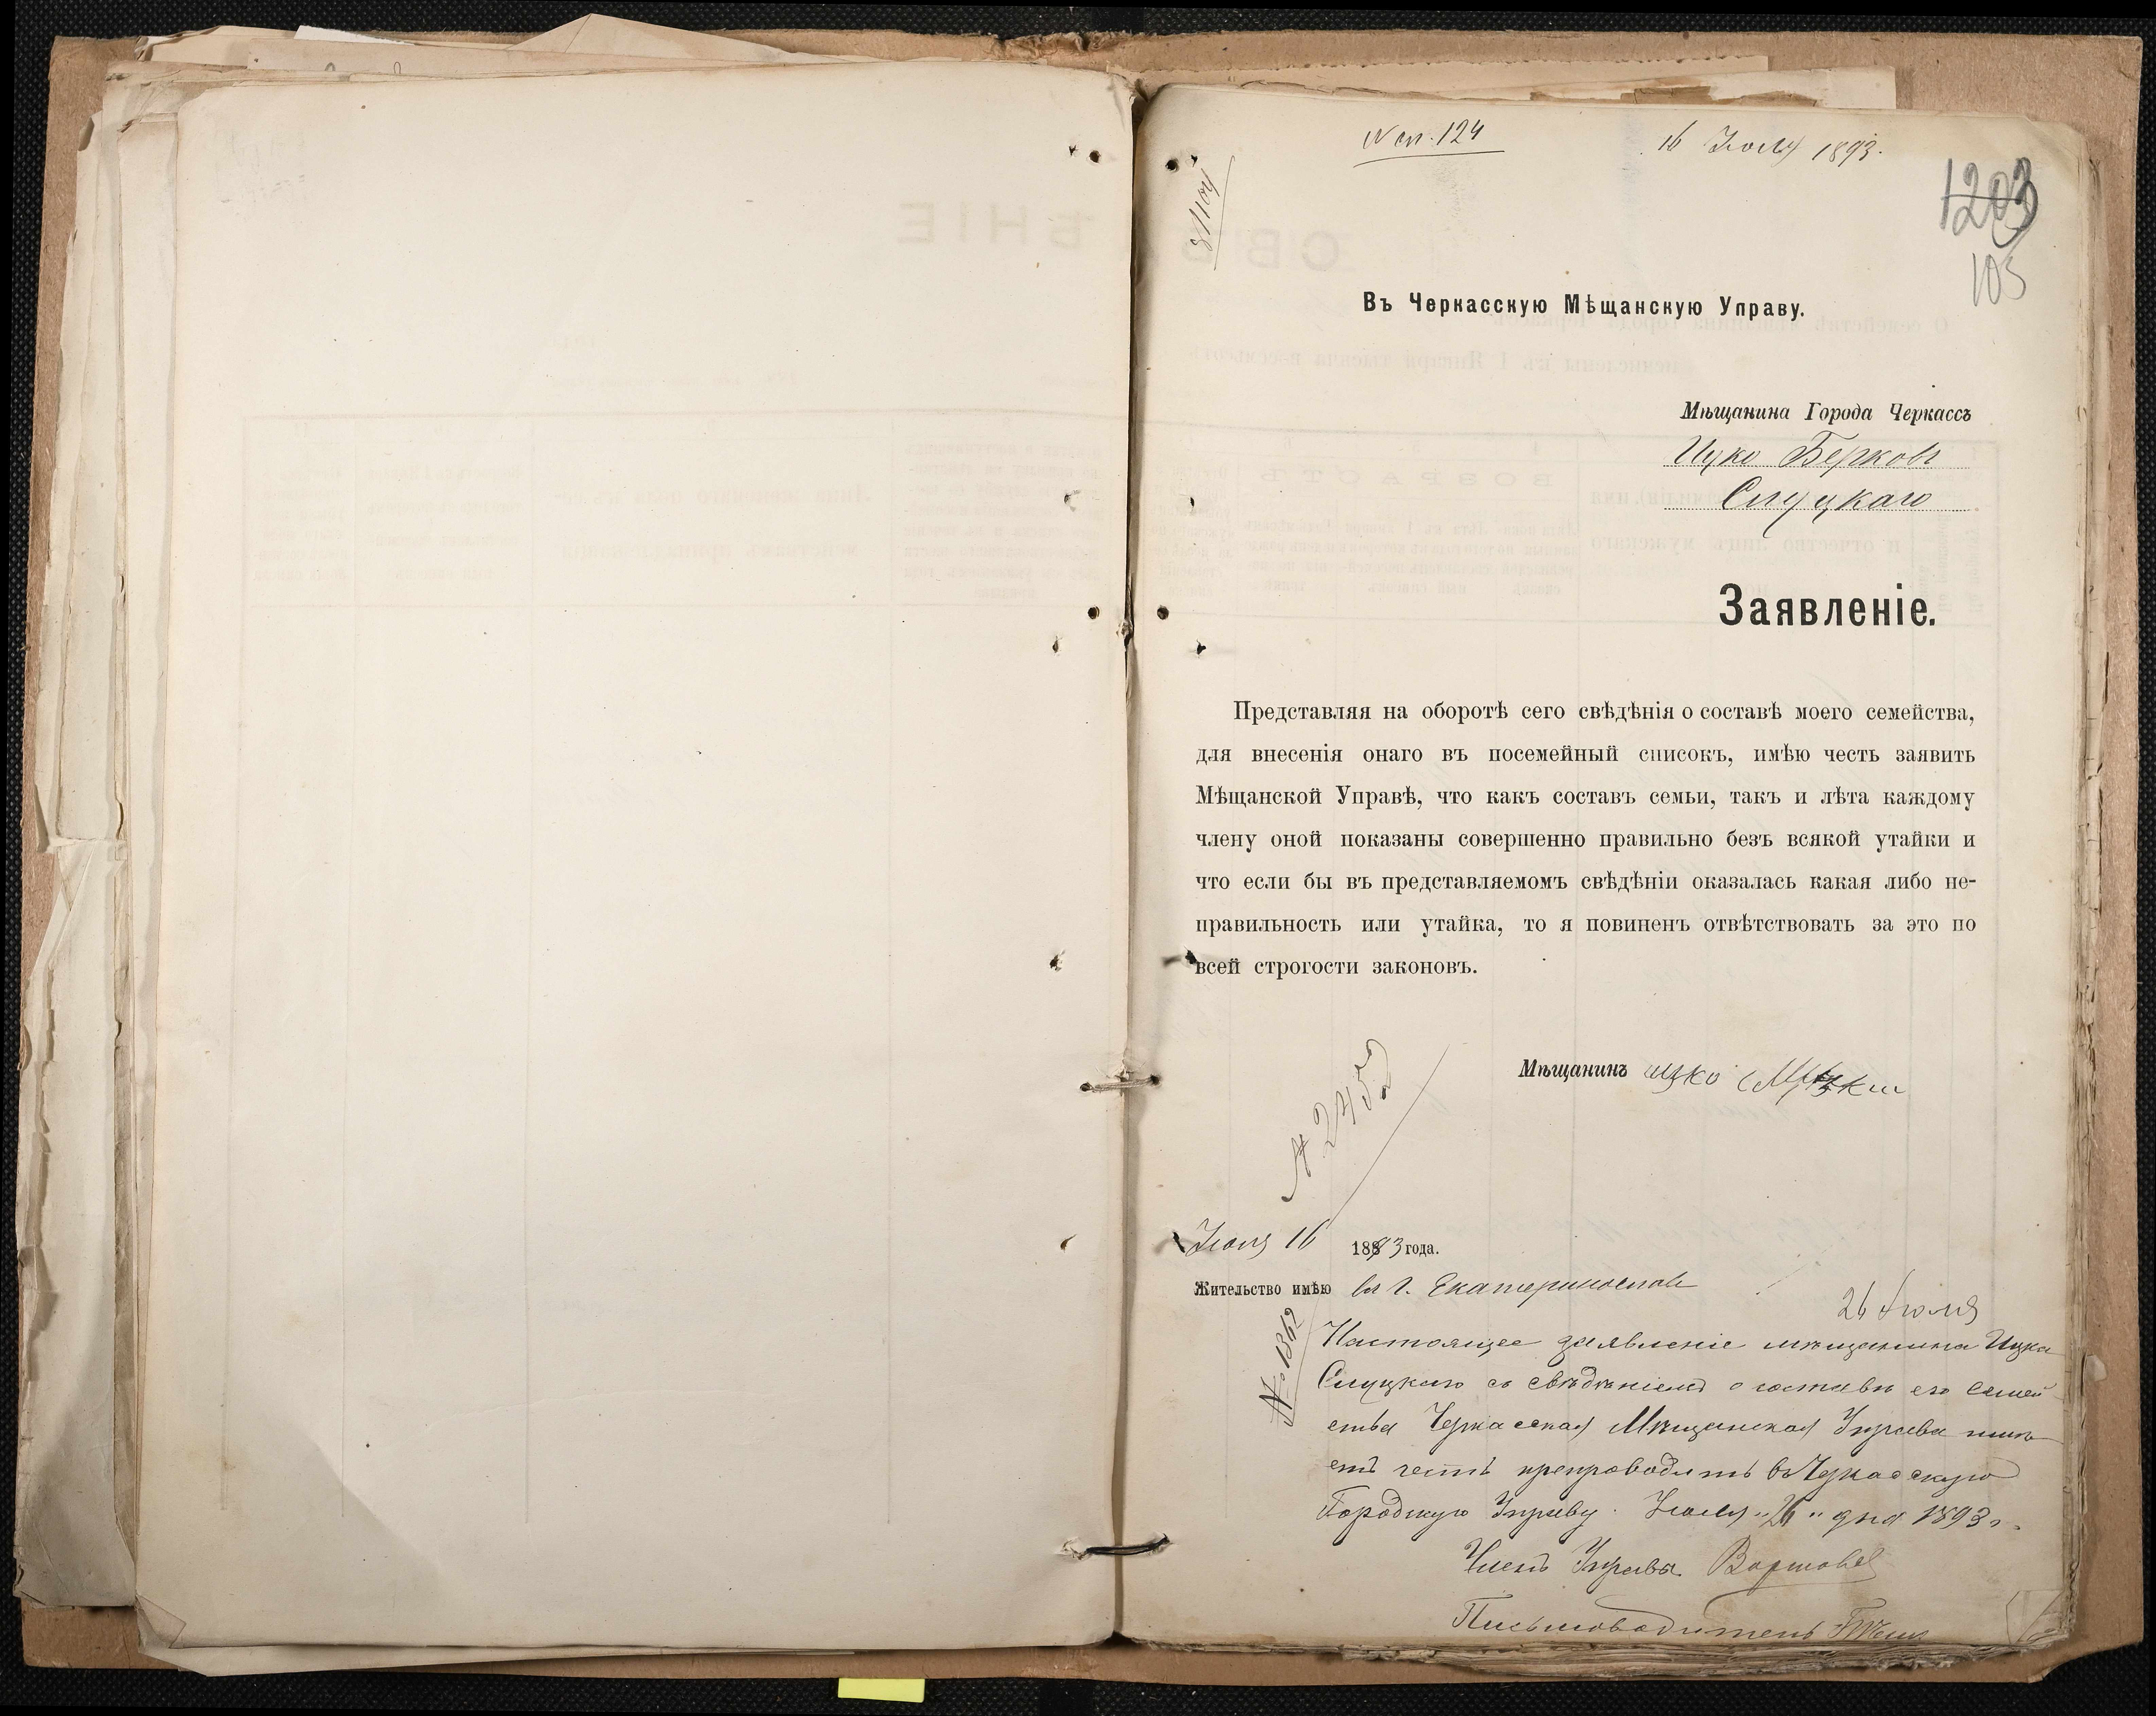 N сп. 124
16 Іюля 1893.
1203
105
Въ Черкасскую Мѣщанскую Управу.
Мѣщанина Города Черкассъ
Ицко Берковъ
Слуцкаго
Заявленіе.
Представляя на оборотѣ сего свѣдѣнія о составѣ моего семейства,
для внесенія онаго въ посемейный списокъ, имѣю честь заявить
Мѣщанской Управѣ, что какъ составъ семьи, такъ и лѣта каждому
члену оной показаны совершенно правильно безъ всякой утайки и
что если бы въ представляемомъ свѣдѣніи оказалась какая либо не-
правильность или утайка, то я повиненъ отвѣтствовать за это по
всей строгости законовъ.
Мѣщанинъ ицко
№ 2452
Іюля 16 1893 года.
Жительство имѣю въ г. Екатеринославѣ
26 Іюля
№ 1362
Настоящее заявленіе мѣщанина Ицка
Слуцкаго съ свѣдѣніемъ о составѣ его семей
ства Черкасская Мѣщанская Управа имѣ
етъ честь препроводить въ Черкасскую
Городскую Управу. Іюля "26" дня 1893 г.
Членъ Управы
Письмоводитель